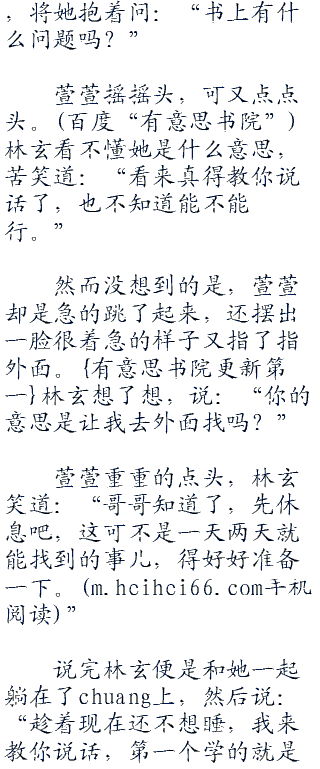 ，将她抱着问：“书上有什
么问题吗？”
萱萱摇摇头，可又点点
头。(百度“有意思书院”)
林玄看不懂她是什么意思，
苦笑道：“看来真得教你说
话了，也不知道能不能
行。”
然而没想到的是，萱萱
却是急的跳了起来，还摆出
一脸很着急的样子又指了指
外面。{有意思书院更新第
一}林玄想了想，说：“你的
意思是让我去外面找吗？”
萱萱重重的点头，林玄
笑道：“哥哥知道了，先休
息吧，这可不是一天两天就
能找到的事儿，得好好准备
一下。(m.hcihci66.com手机
阅读)”
说完林玄便是和她一起
躺在了chuang上，然后说：
“趁着现在还不想睡，我来
教你说话，第一个学的就是